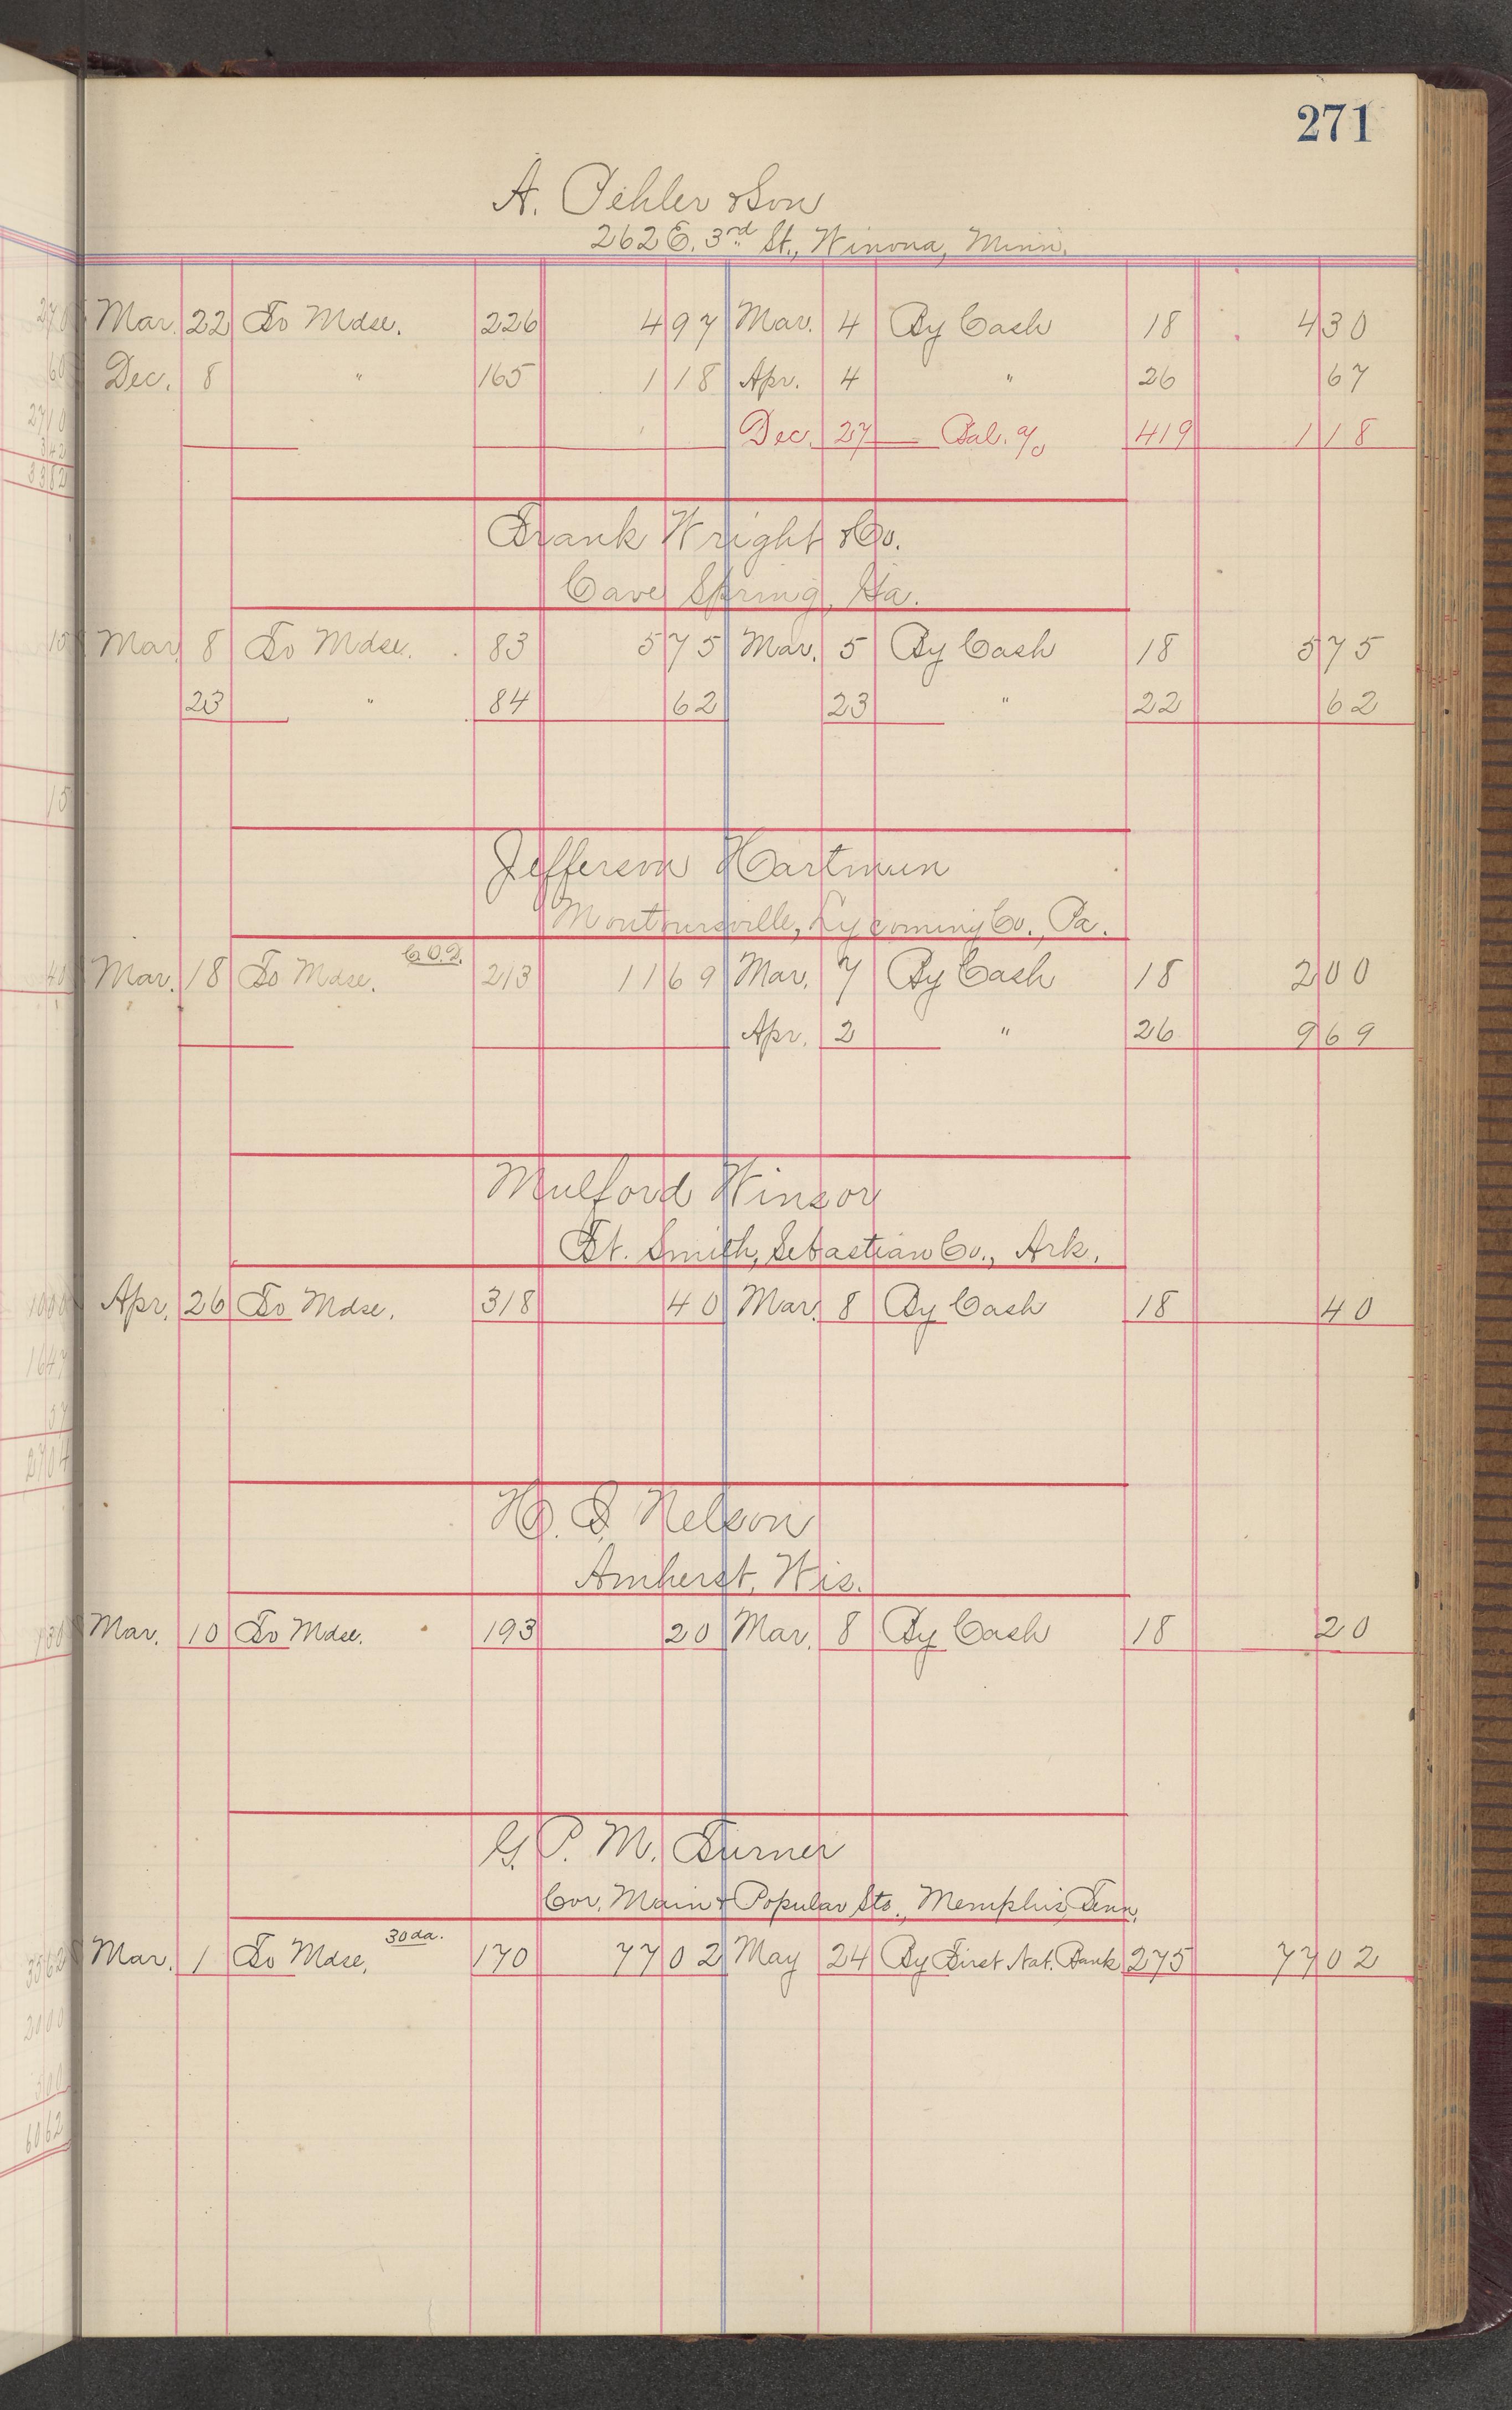 271
A. Pehler & Son
262 E. 3rd St., Winona, Minn.
Mar. 22 To Mdse. 226 4 97 Mar. 4 By Cash 18 4 30
Dec. 8 " 165 1 18 Apr. 4 " 26 67
Dec. 27 Bal. % 419 1 18
Frank Wright & Co.
Cave Spring, Ga.
Mar. 8 To Mdse. 83 5 75 Mar. 5 By Cash 18 5 75
23 " 84 62 23 " 22 62
Jefferson Hartman
Montoursville, Lycoming Co., Pa.
Mar. 18 To Mdse. C.O.D. 213 11 69 Mar. 7 By Cash 18 2 00
Apr. 2 " 26 9 69
Mulford Winsor
Ft. Smith, Sebastian Co., Ark.
Apr. 26 To Mdse. 318 40 Mar. 8 By Cash 18 40
Nelson
Amherst, Wis.
Mar. 10 To Mdse. 193 20 Mar. 8 By Cash 18 20
G. P. M. Turner
Cor. Main & Popular Sts., Memphis, Tenn.
Mar. 1 To Mdse. 30 da. 170 77 02 May 24 By First Nat. Bank 275 77 02